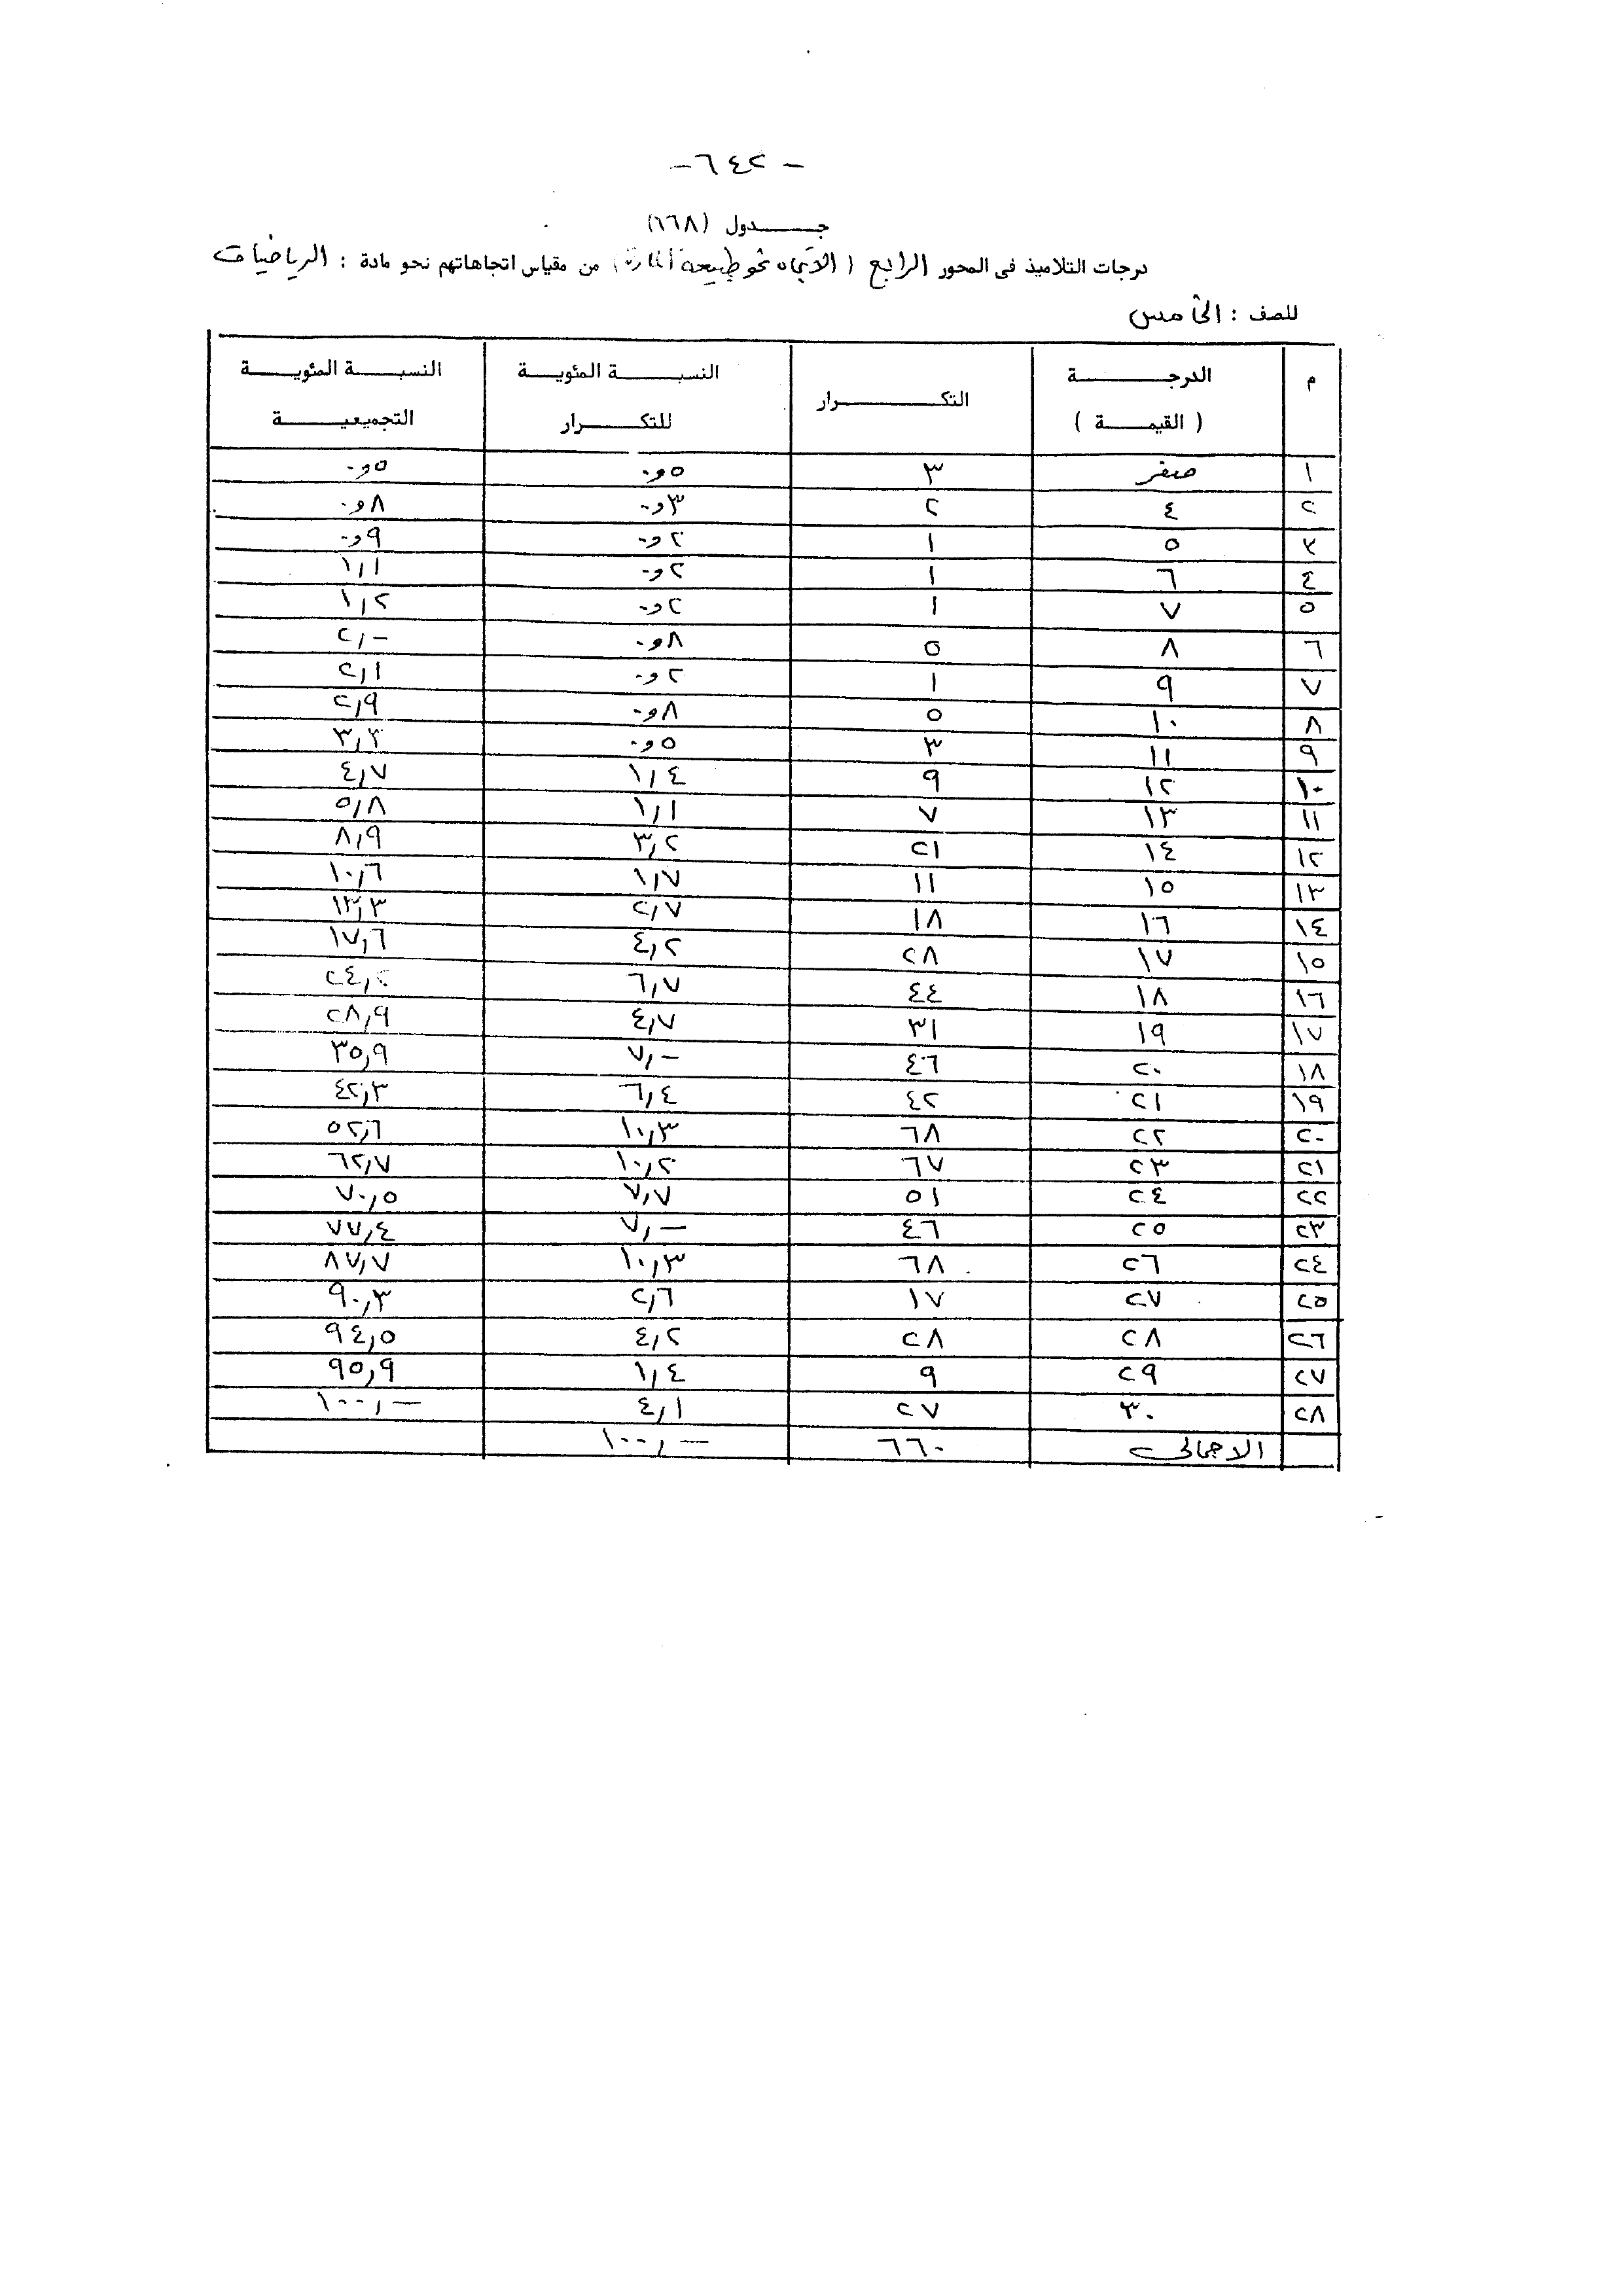 - ٦٤٢ -
جـــدول (٦٦٨)
درجات التلاميذ فى المحور الرابع (الاتجاه نحو طبيعة المادة) من مقياس اتجاهاتهم نحو مادة : الرياضيات
للصف : الخامس
م الدرجـــة (القيمـــة) التكـــرار النسبـــة المئويـــة للتكـــرار النسبـــة المئويـــة التجميعيـــة
١ صفر ٣ ٥و٠ ٥و٠
٢ ٤ ٢ ٣و٠ ٨و٠
٣ ٥ ١ ٢و٠ ٩و٠
٤ ٦ ١ ٢و٠ ١,١
٥ ٧ ١ ٢و٠ ١,٢
٦ ٨ ٥ ٨و٠ ٢,-
٧ ٩ ١ ٢و٠ ٢,١
٨ ١٠ ٥ ٨و٠ ٢,٩
٩ ١١ ٣ ٥و٠ ٣,٣
١٠ ١٢ ٩ ١,٤ ٤,٧
١١ ١٣ ٧ ١,١ ٥,٨
١٢ ١٤ ٢١ ٣,٢ ٨,٩
١٣ ١٥ ١١ ١,٧ ١٠,٦
١٤ ١٦ ١٨ ٢,٧ ١٣,٣
١٥ ١٧ ٢٨ ٤,٢ ١٧,٦
١٦ ١٨ ٤٤ ٦,٧ ٢٤,٢
١٧ ١٩ ٣١ ٤,٧ ٢٨,٩
١٨ ٢٠ ٤٦ ٧,- ٣٥,٩
١٩ ٢١ ٤٢ ٦,٤ ٤٢,٣
٢٠ ٢٢ ٦٨ ١٠,٣ ٥٢,٦
٢١ ٢٣ ٦٧ ١٠,٢ ٦٢,٧
٢٢ ٢٤ ٥١ ٧,٧ ٧٠,٥
٢٣ ٢٥ ٤٦ ٧,- ٧٧,٤
٢٤ ٢٦ ٦٨ ١٠,٣ ٨٧,٧
٢٥ ٢٧ ١٧ ٢,٦ ٩٠,٣
٢٦ ٢٨ ٢٨ ٤,٢ ٩٤,٥
٢٧ ٢٩ ٩ ١,٤ ٩٥,٩
٢٨ ٣٠ ٢٧ ٤,١ ١٠٠,-
الاجمالى ٦٦٠ ١٠٠,-